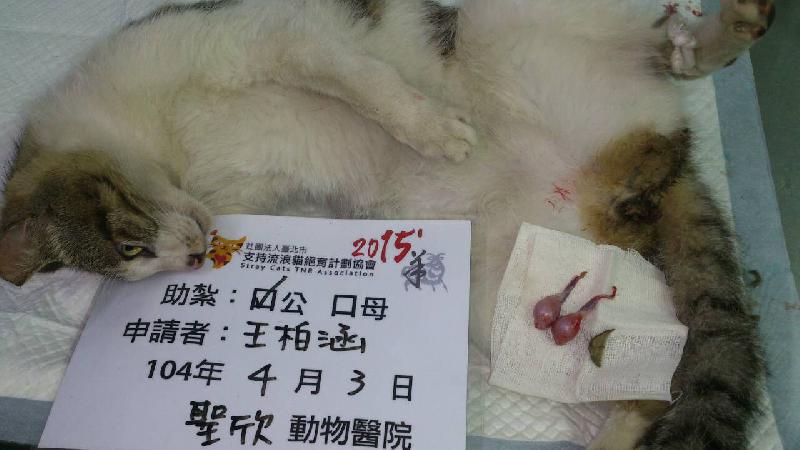 社團法人臺北市
支持流浪貓絕育計劃協會
Stray Cats TNR Association
2015'
助紮：☑公 口母
申請者：王柏涵
104年 4 月 3 日
聖欣 動物醫院